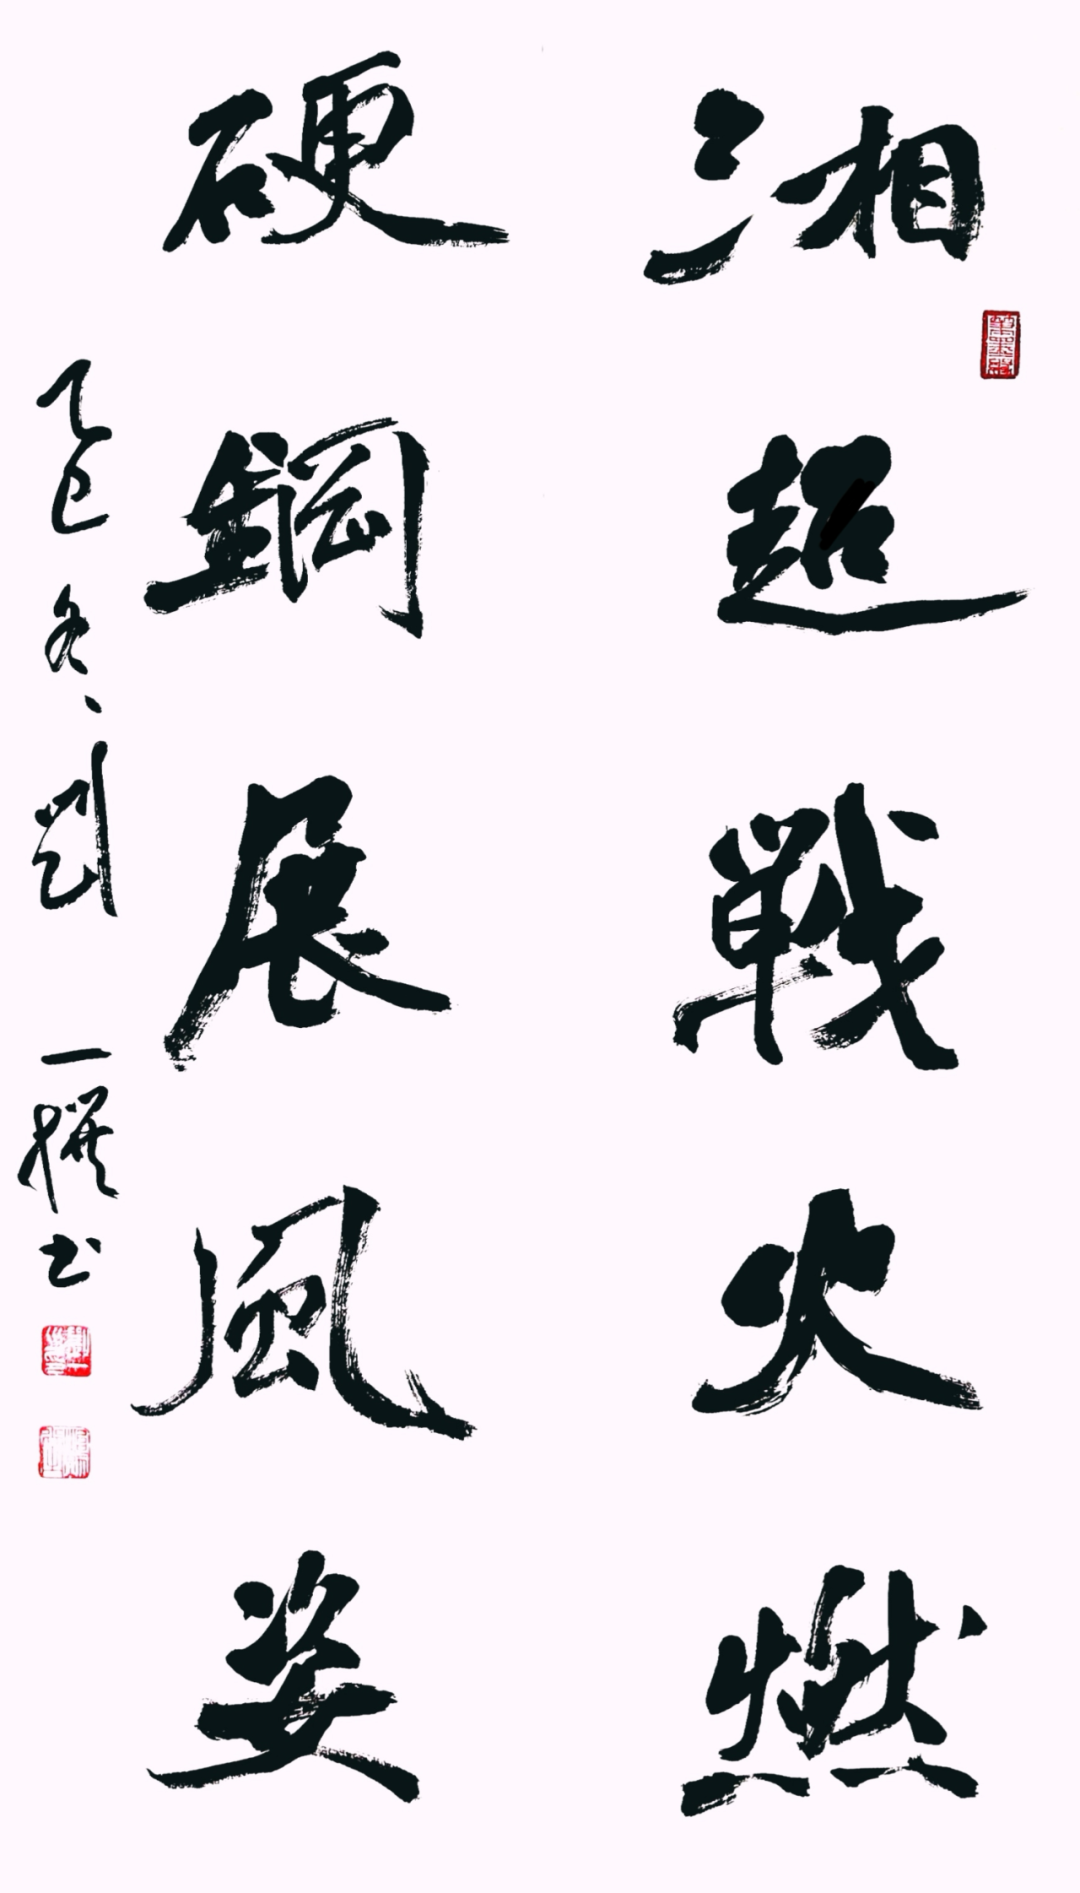 湘超戰火燃
硬鋼展風姿
乙巳冬劉一撰书